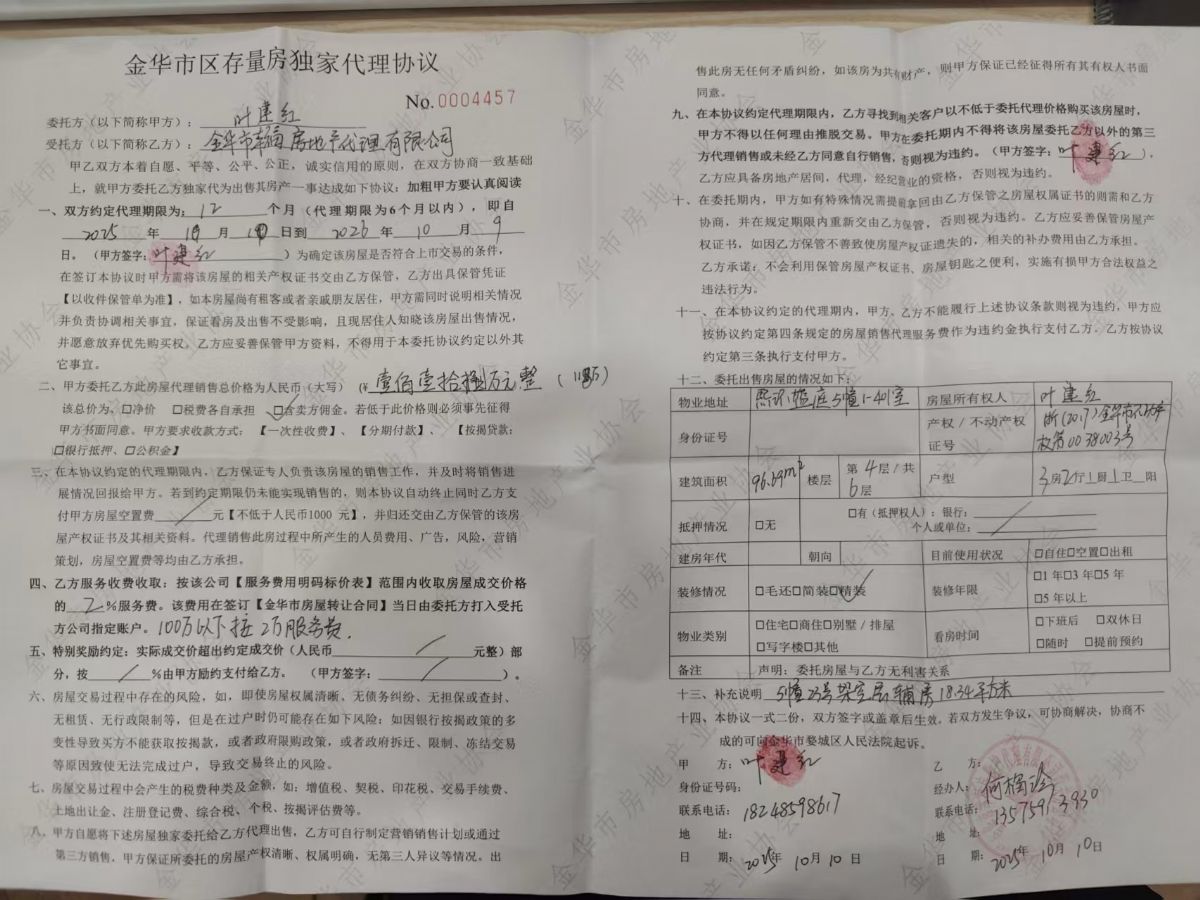 金华市区存量房独家代理协议
No.0004457
委托方（以下简称甲方）：叶建红
受托方（以下简称乙方）：金华市 房地产代理有限公司
甲乙双方本着自愿、平等、公平、公正，诚实信用的原则，在双方协商一致基础
上，就甲方委托乙方独家代为出售其房产一事达成如下协议：加粗甲方要认真阅读
一、双方约定代理期限为：12 个月（代理期限为6个月以内），即自
2025 年 10 月 10 日到 2026 年 10 月 9
日。（甲方签字：叶建红）为确定该房屋是否符合上市交易的条件，
在签订本协议时甲方需将该房屋的相关产权证书交由乙方保管，乙方出具保管凭证
【以收件保管单为准】，如本房屋尚有租客或者亲戚朋友居住，甲方需同时说明相关情况
并负责协调相关事宜，保证看房及出售不受影响，且现居住人知晓该房屋出售情况，
并愿意放弃优先购买权。乙方应妥善保管甲方资料，不得用于本委托协议约定以外其
它事宜。
二、甲方委托乙方此房屋代理销售总价格为人民币（大写）（¥ 壹佰壹拾 万元整（ 万）
该总价为、□净价 □税费各自承担 ☑含卖方佣金。若低于此价格则必须事先征得
甲方书面同意。甲方要求收款方式：【一次性收费】、【分期付款】、【按揭贷款：
□银行抵押、□公积金】
三、在本协议约定的代理期限内，乙方保证专人负责该房屋的销售工作，并及时将销售进
展情况回报给甲方。若到约定期限仍未能实现销售的，则本协议自动终止同时乙方支
付甲方房屋空置费 / 元【不低于人民币1000 元】，并归还交由乙方保管的该房
屋产权证书及其相关资料。代理销售此房过程中所产生的人员费用、广告，风险，营销
策划，房屋空置费等均由乙方承担。
四、乙方服务收费收取：按该公司【服务费用明码标价表】范围内收取房屋成交价格
的 2 %服务费。该费用在签订【金华市房屋转让合同】当日由委托方打入受托
方公司指定账户。100万以下按2万服务费.
五、特别奖励约定：实际成交价超出约定成交价（人民币 / 元整）部
分，按 / %由甲方励约支付给乙方。（甲方签字： / ）。
六、房屋交易过程中存在的风险，如，即使房屋权属清晰、无债务纠纷、无担保或查封、
无租赁、无行政限制等，但是在过户时仍可能存在如下风险：如因银行按揭政策的多
变性导致买方不能获取按揭款，或者政府限购政策，或者政府拆迁、限制、冻结交易
等原因致使无法完成过户，导致交易终止的风险。
七、房屋交易过程中会产生的税费种类及金额，如：增值税、契税、印花税、交易手续费、
土地出让金、注册登记费、综合税、个税、按揭评估费等。
八、甲方自愿将下述房屋独家委托给乙方代理出售，乙方可自行制定营销销售计划或通过
第三方销售，甲方保证所委托的房屋产权清晰、权属明确，无第三人异议等情况。出
售此房无任何矛盾纠纷，如该房为共有财产，则甲方保证已经征得所有其有权人书面
同意。
九、在本协议约定代理期限内，乙方寻找到相关客户以不低于委托代理价格购买该房屋时，
甲方不得以任何理由推脱交易。甲方在委托期内不得将该房屋委托乙方以外的第三
方代理销售或未经乙方同意自行销售，否则视为违约。（甲方签字：叶建红），
乙方应具备房地产居间，代理，经纪营业的资格，否则视为违约。
十、在委托期内，甲方如有特殊情况需提前拿回由乙方保管之房屋权属证书的则需和乙方
协商，并在规定期限内重新交由乙方保管，否则视为违约。乙方应妥善保管房屋产
权证书，如因乙方保管不善致使房屋产权证遗失的，相关的补办费用由乙方承担。
乙方承诺：不会利用保管房屋产权证书、房屋钥匙之便利，实施有损甲方合法权益之
违法行为。
十一、在本协议约定的代理期内，甲方、乙方不能履行上述协议条款则视为违约，甲方应
按协议约定第四条规定的房屋销售代理服务费作为违约金执行支付乙方。乙方按协议
约定第三条执行支付甲方。
十二、委托出售房屋的情况如下：
物业地址 5幢1-401室 房屋所有权人 叶建红
身份证号 产权／不动产权证号 浙(2017)金华市不动产权第0038003号
建筑面积 96.69m² 楼层 第4层/共6层 户型 3房2厅1厨1卫 阳
抵押情况 □无 □有（抵押权人）：银行：
个人或单位： /
建房年代 朝向 目前使用状况 □自住□空置□出租
装修情况 □毛还□简装☑精装 装修年限 □1年□3年□5年
□5年以上
物业类别 □住宅□商住□别墅／排屋 看房时间 □下班后 □双休日
□写字楼□其他 □随时 □提前预约
备注 声明：委托房屋与乙方无利害关系
十三、补充说明 5幢23号架空层辅房18.34平方米
十四、本协议一式二份，双方签字或盖章后生效，若双方发生争议，可协商解决，协商不
成的可向金华市婺城区人民法院起诉。
甲 方：叶建红 乙 方：
身份证号码： 经办人：何
联系电话：18248598617 联系电话：13575913930
地 址： 地 址：
日 期：2025年10月10日 日 期：2025年10月10日